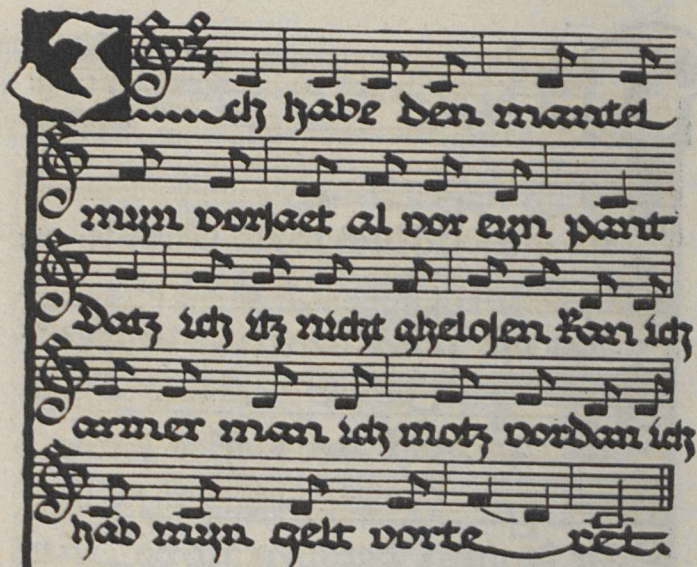 Ich habe den mantel
myn vorsaet al vor eyn pant
Datz ich itz nicht ghelosen kan ich
armer man ich motz vordan ich
hab myn gelt vorteret.